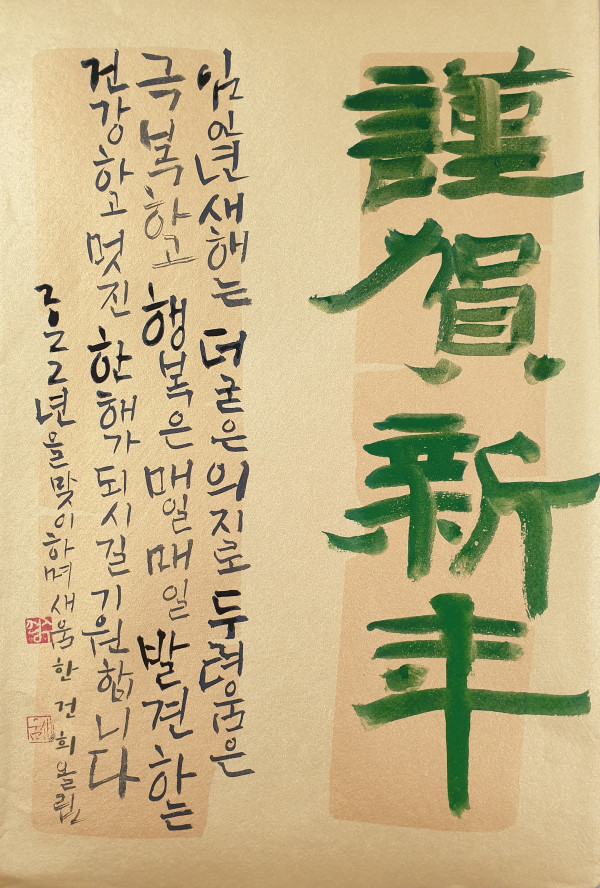 謹賀新年
임인년새해는 더굳은의지로 두려움은
극복하고 행복은매일매일 발견하는
건강하고 멋진 한해가 되시길 기원합니다
2022년을맞이하며 새움 한건희올림